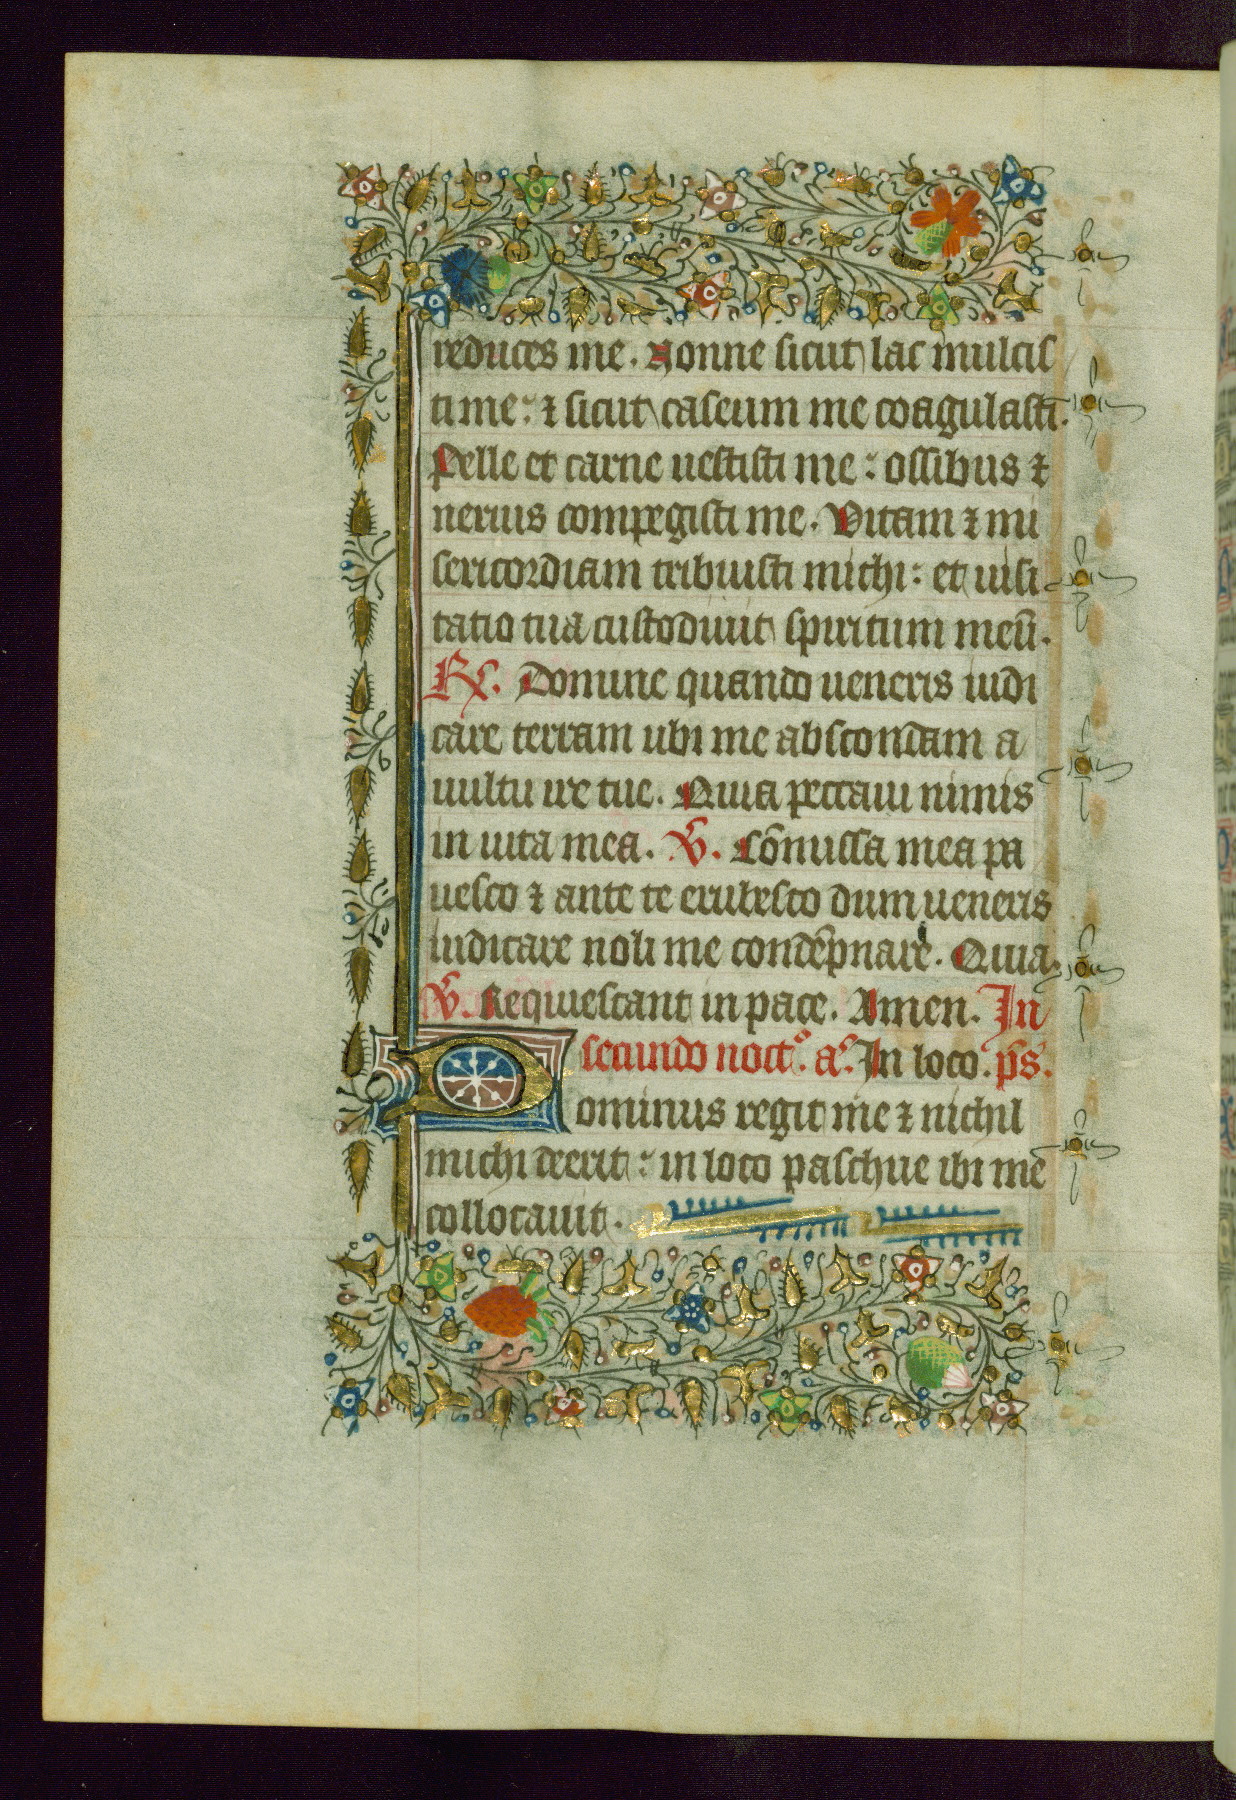 reduces me. Nonne sicut lac mulcis
ti me: ⁊ sicut caseum me coagulasti.
Pelle et carne uestisti me: ossibus ⁊
neruis compegisti me. Vitam ⁊ mi
sericordiam tribuisti michi: et uisi
tatio tua custodiuit spiritum meū.
R℣. Domine quando ueneris iudi
care terram ubi me abscondam a
uultu ire tue. Quia peccaui nimis
in uita mea. ℣. Cōmissa mea pa
uesco ⁊ ante te erubesco dum ueneris
iudicare noli me condēpnare. Quia.
℣. Requiescant in pace. Amen. In
secundo noct°. a°. In loco. p̄s.
Dominus regit me ⁊ nichil
michi deerit: in loco paschue ibi me
collocauit.